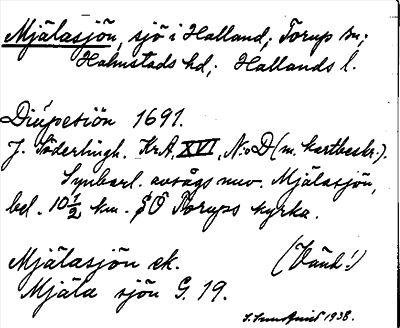 Mjälasjön, sjö i Halland; Torup sn;
Halmstads hd; Hallands l.
Diúpesiön 1691.
J. Söderlingh. KrA, XVI, N:o D (m. kartbeskr.).
Synbarl. avsågs nuv. Mjälasjön,
bel. 10 1/2 km. SÖ Torups kyrka.
Mjälasjön ek. (Vänd!)
Mjäla sjön G. 19.
1938.